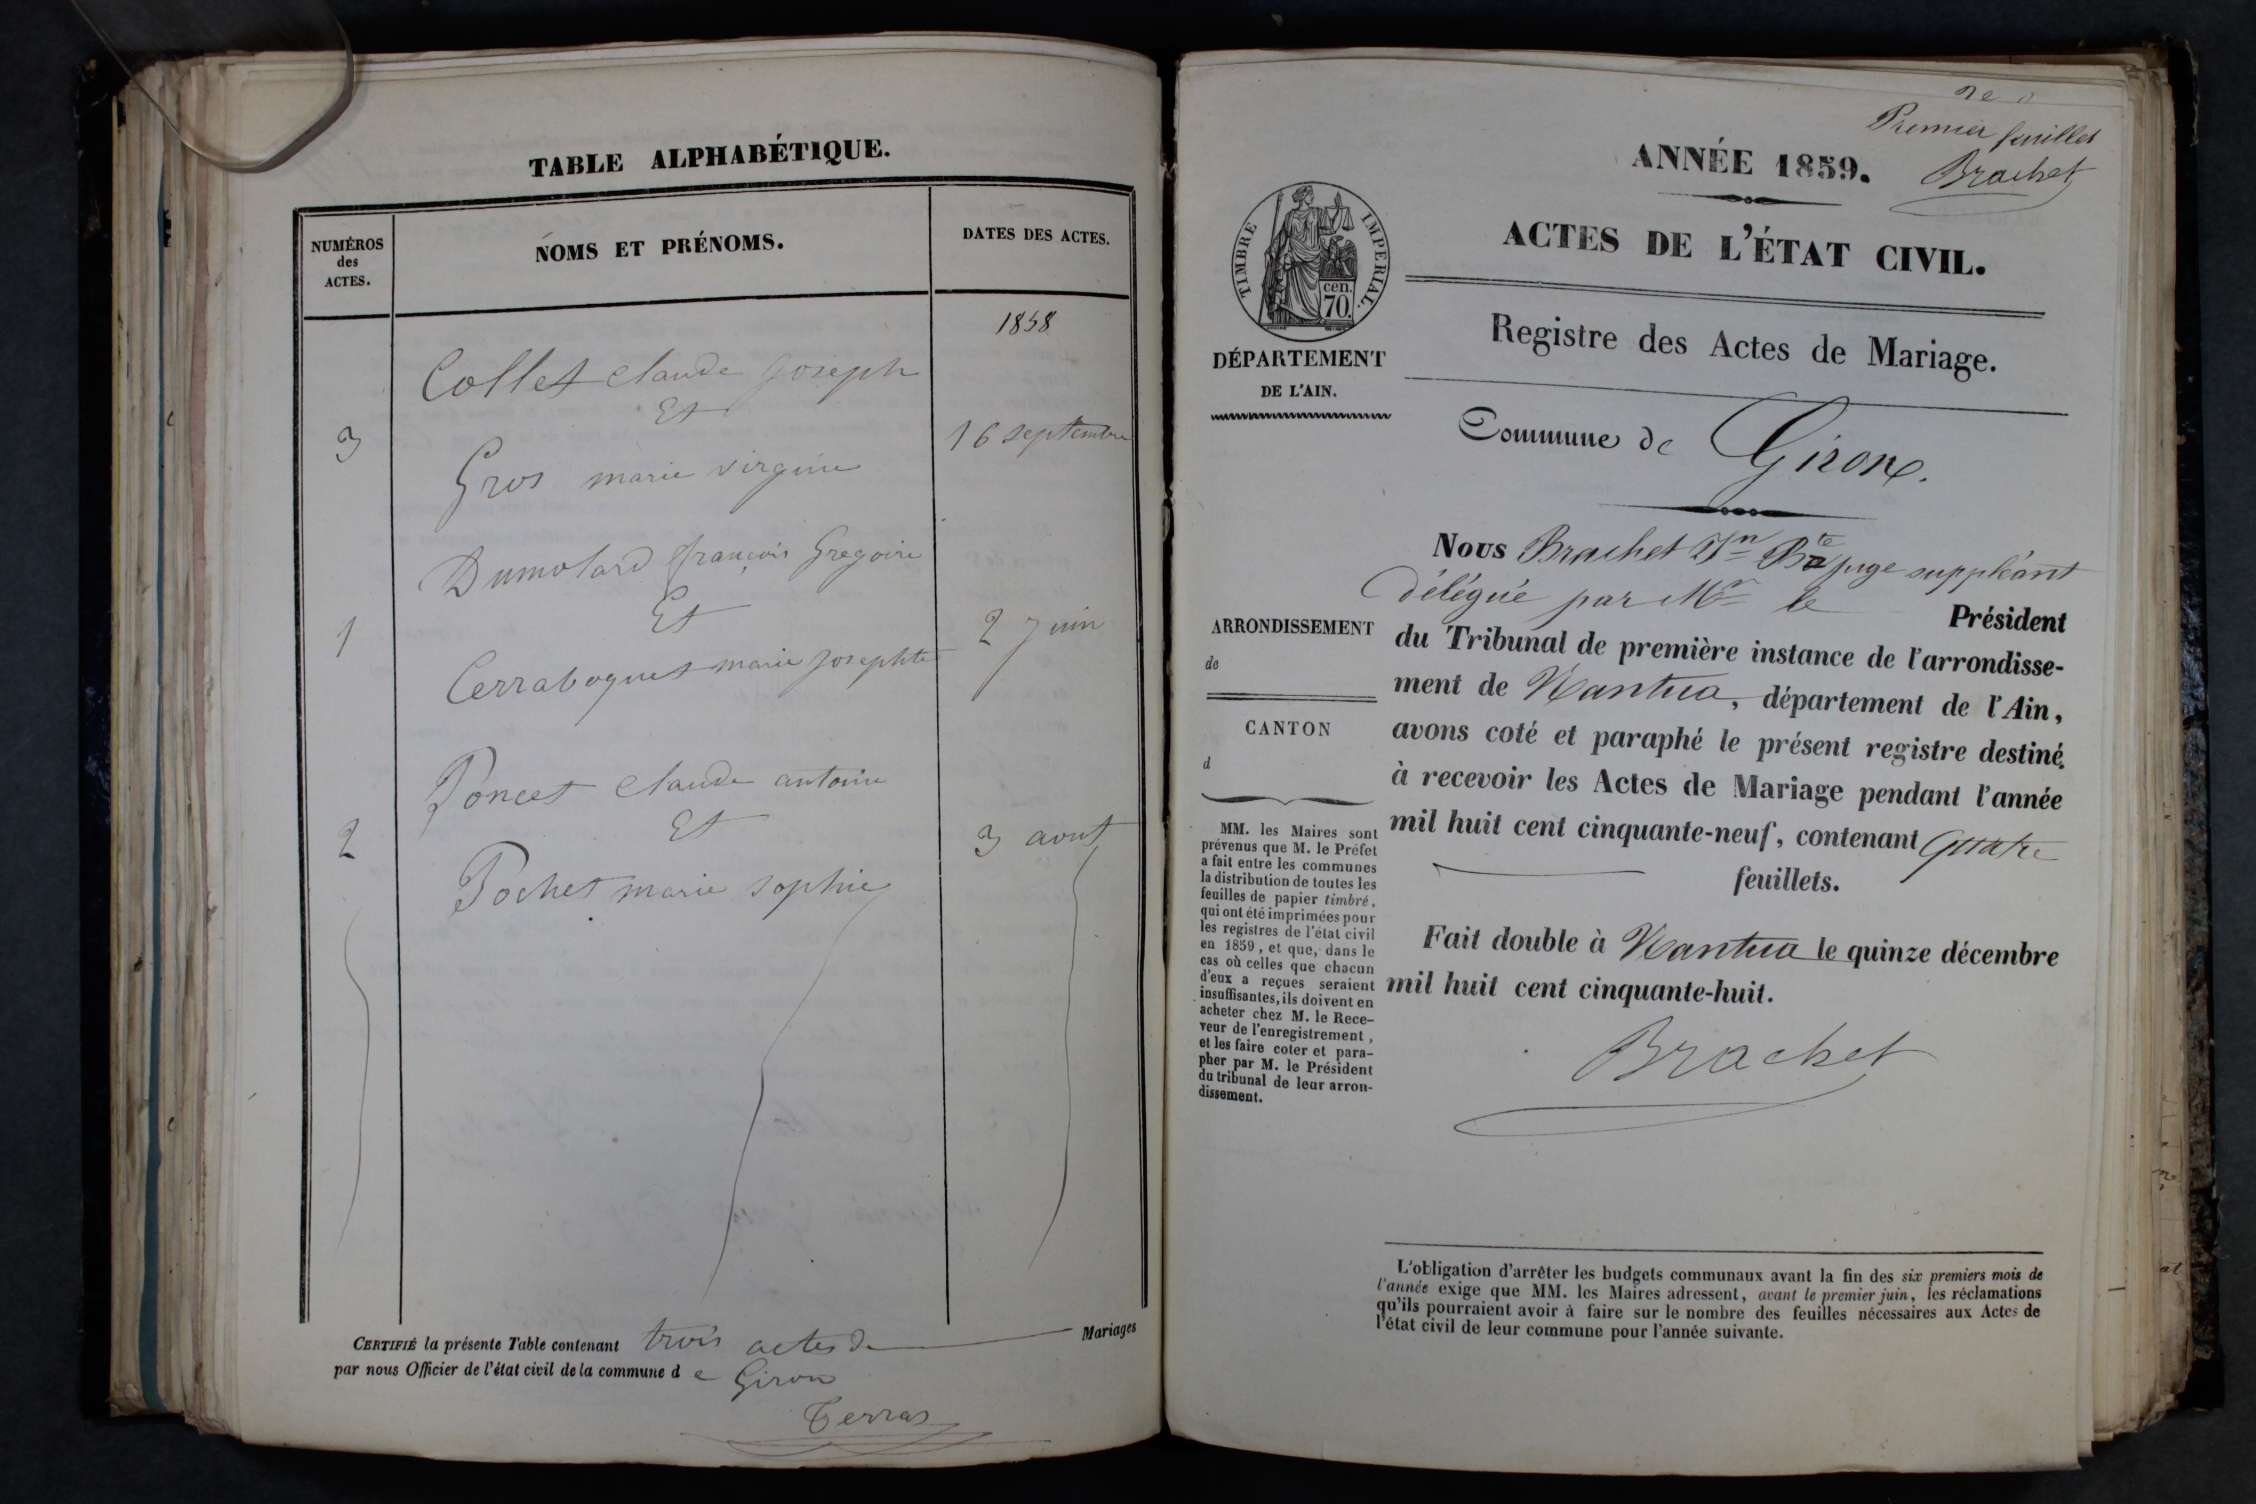 TABLE ALPHABÉTIQUE.
NUMÉROS
des
ACTES.
NOMS ET PRÉNOMS.
DATES DES ACTES.
1858
Collet Claude Joseph
Et
3
16 septembre
Gros marie virginie
Dumolard françois Gregoire
Et
1
2 juin
marie josephte
Poncet Claude antoine
Et
2
3 aout
Pochet marie sophie
CERTIFIÉ la présente Table contenant trois actes de Mariages
par nous Officier de l'état civil de la commune d e Giron
Terras
Premier feuillet
Brachet
ANNÉE 1859.
TIMBRE IMPÉRIAL.
cen.
70.
ACTES DE L'ÉTAT CIVIL.
DÉPARTEMENT
DE L'AIN.
Registre des Actes de Mariage.
Commune de Giron.
Nous Brachet Jn Bte juge suppléant
délégué par Mr le Président
ARRONDISSEMENT
de
CANTON
d
du Tribunal de première instance de l'arrondisse-
ment de Nantua, département de l'Ain,
avons coté et paraphé le présent registre destiné
à recevoir les Actes de Mariage pendant l'année
mil huit cent cinquante-neuf, contenant quatre
feuillets.
Fait double à Nantua le quinze décembre
mil huit cent cinquante-huit.
Brachet
MM. les Maires sont
prévenus que M. le Préfet
a fait entre les communes
la distribution de toutes les
feuilles de papier timbré,
qui ont été imprimées pour
les registres de l'état civil
en 1859, et que, dans le
cas où celles que chacun
d'eux a reçues seraient
insuffisantes, ils doivent en
acheter chez M. le Rece-
veur de l'enregistrement,
et les faire coter et para-
pher par M. le Président
du tribunal de leur arron-
dissement.
L'obligation d'arrêter les budgets communaux avant la fin des six premiers mois de
l'année exige que MM. les Maires adressent, avant le premier juin, les réclamations
qu'ils pourraient avoir à faire sur le nombre des feuilles nécessaires aux Actes de
l'état civil de leur commune pour l'année suivante.